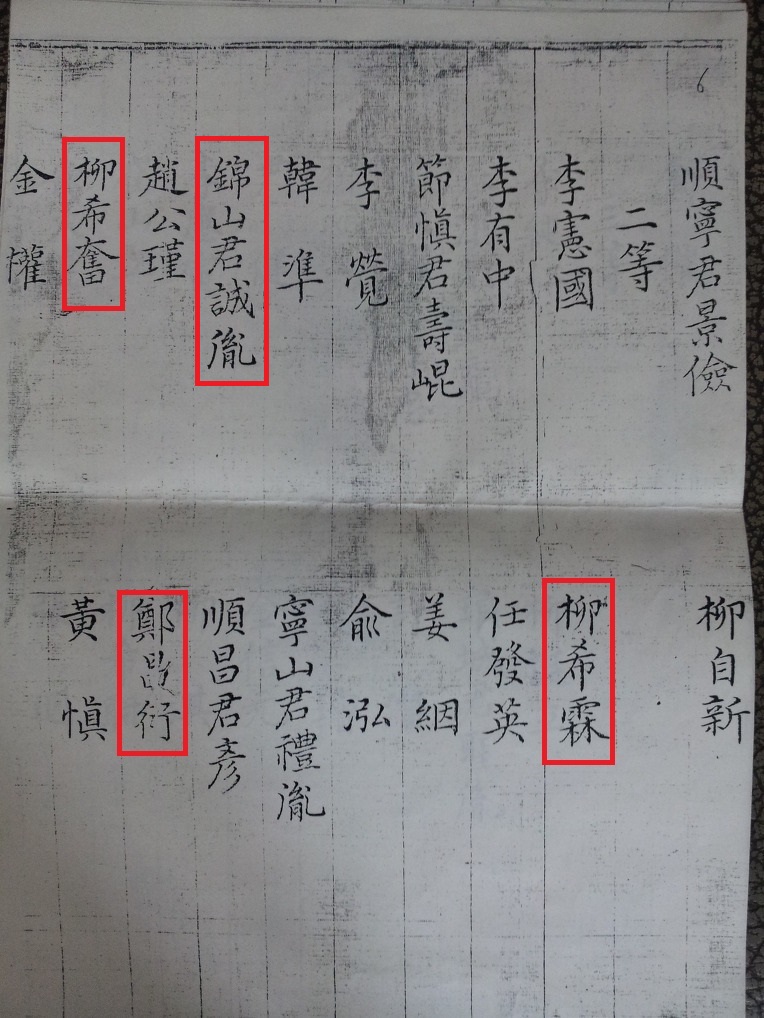 6
順寧君景儉
柳自新
二等
李憲國
柳希霖
李有中
任發英
節愼君壽崐
姜絪
李覺
兪泓
韓準
寧山君禮胤
錦山君誠胤
順昌君彥
趙公瑾
鄭昌衍
柳希奮
黃愼
金權